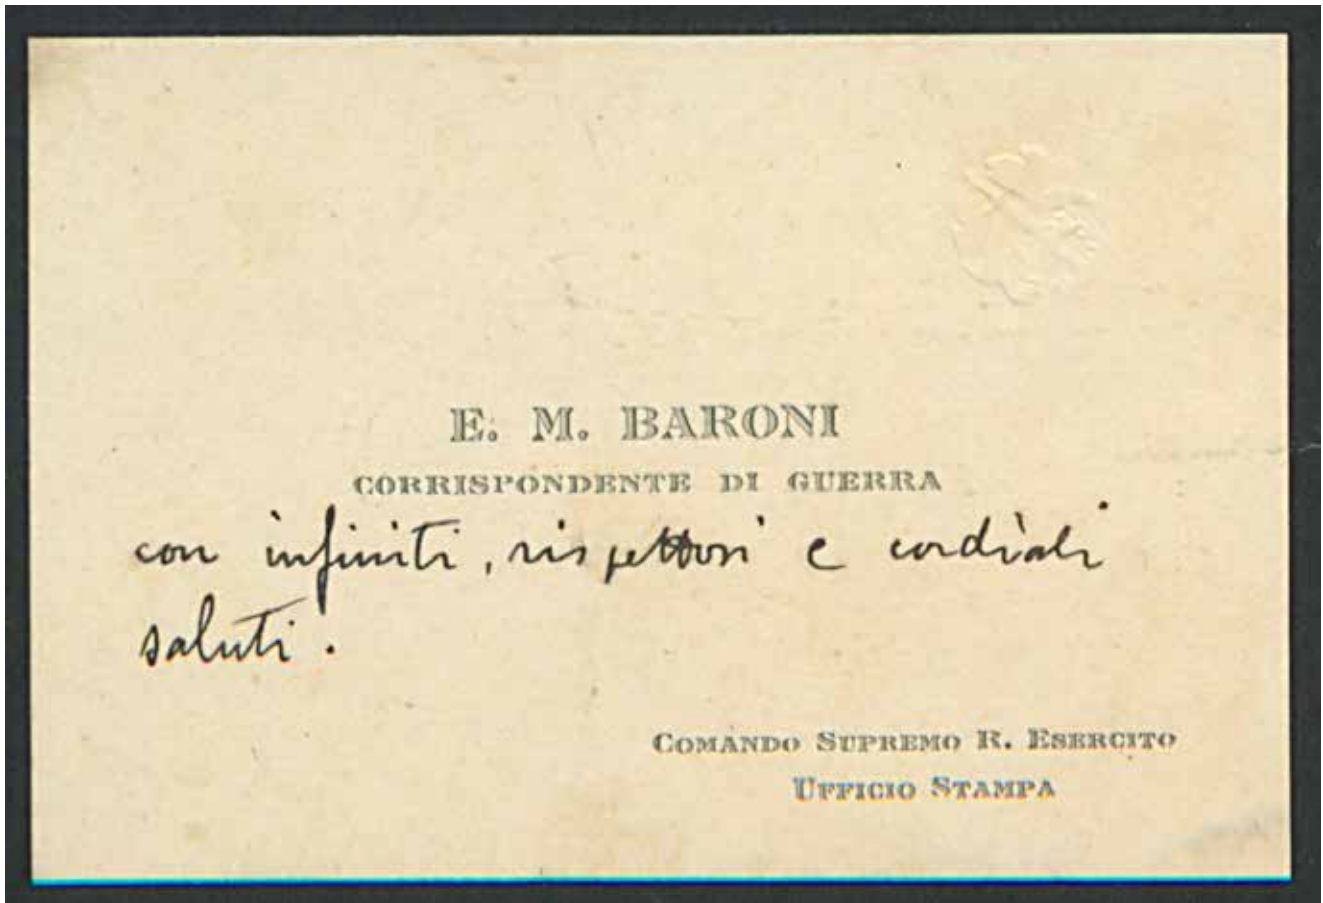 E. M. BARONI
CORRISPONDENTE DI GUERRA
con infiniti, rispettosi e cordiali
saluti.
COMANDO SUPREMO R. ESERCITO
UFFICIO STAMPA